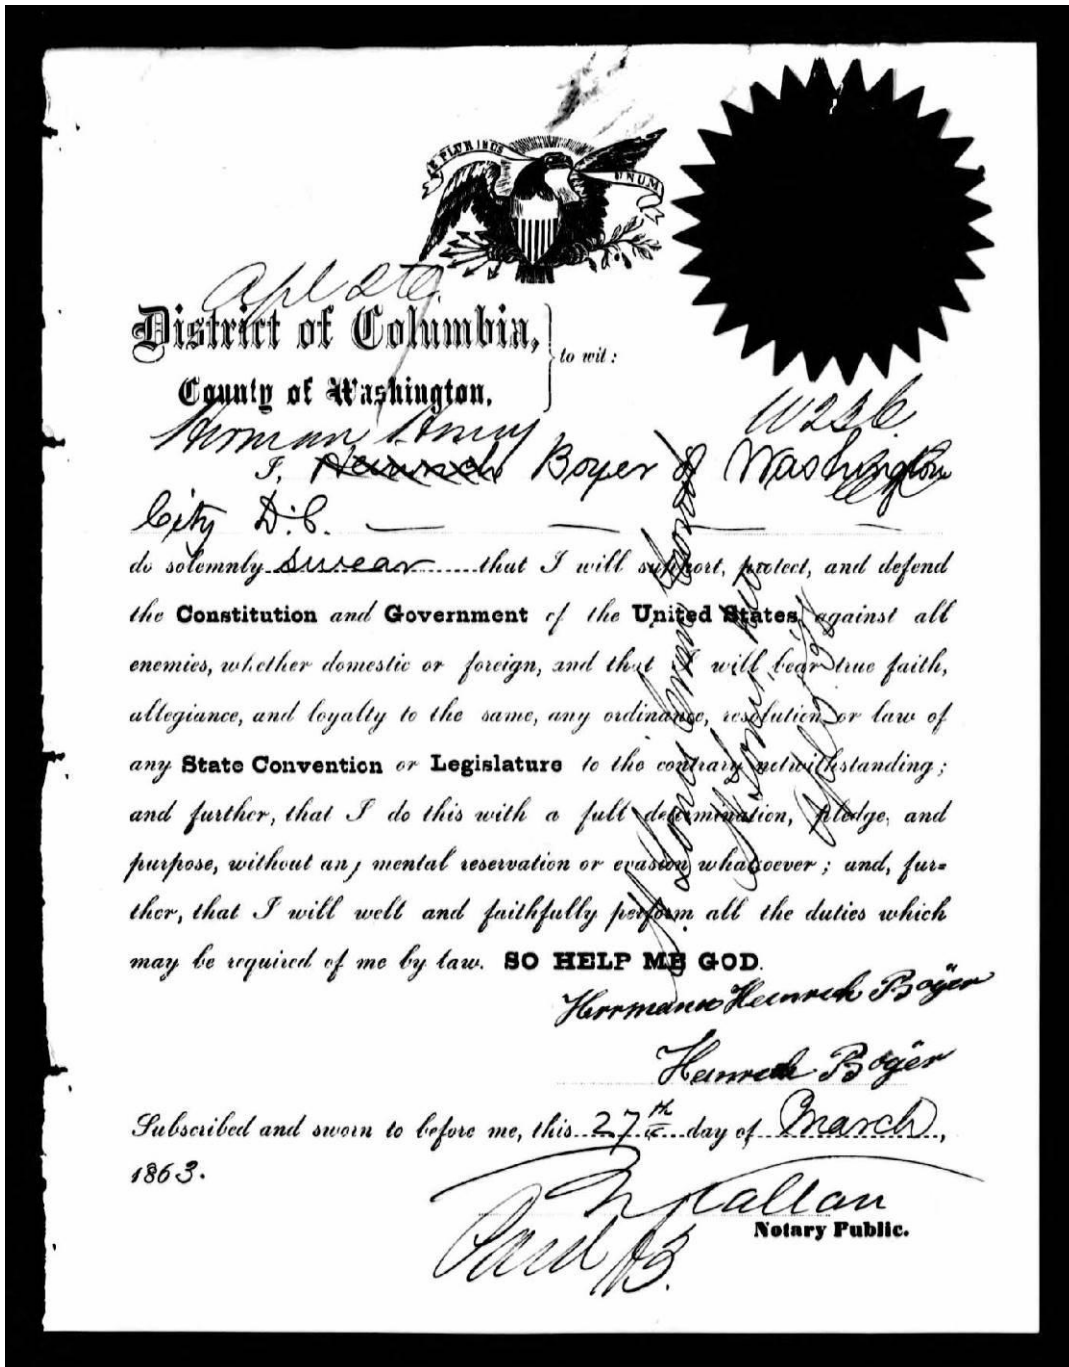 E PLURIBUS UNUM
Apl 2[?]
District of Columbia,
to wit:
County of Washington,
Herman Henry
I, Heinrich Boyer of Washington
City D.C.
do solemnly swear that I will support, protect, and defend
the Constitution and Government of the United States against all
enemies, whether domestic or foreign, and that I will bear true faith,
allegiance, and loyalty to the same, any ordinance, resolution or law of
any State Convention or Legislature to the contrary notwithstanding;
and further, that I do this with a full determination, pledge, and
purpose, without any mental reservation or evasion whatsoever; and, fur-
ther, that I will well and faithfully perform all the duties which
may be required of me by law. SO HELP ME GOD.
Herrmann Heinrich Böÿer
Heinrich Böÿer
Subscribed and sworn to before me, this 27th day of March,
1863.
N Callan
Notary Public.
Paid